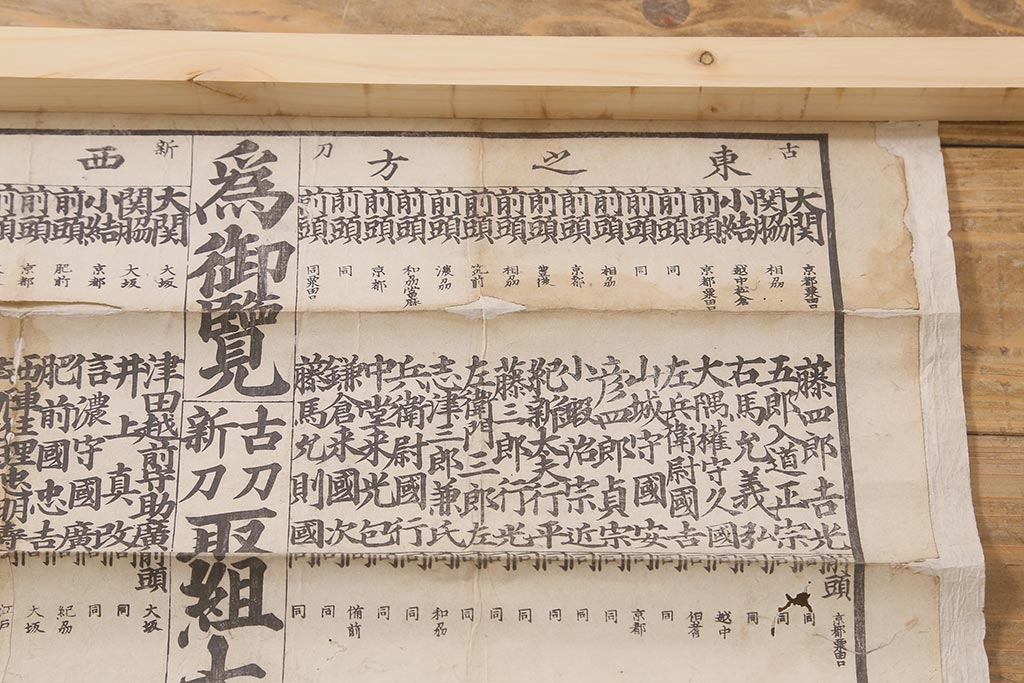 古刀
東之方
大関 京都粟田口 藤四郎吉光
関脇 相刕 五郎入道正宗
小結 越中松倉 右馬允義弘
前頭 京都粟田口 大隅權守久國
前頭 同 左兵衛尉國吉
前頭 同 山城守國安
前頭 相刕 彦四郎貞宗
前頭 京都 小鍛治宗近
前頭 豊後 紀新太夫行平
前頭 相刕 藤三郎行光
前頭 筑前 左衛門三郎左
前頭 濃刕 志津三郎兼氏
前頭 和刕當麻 兵衛尉國行
前頭 京都 中堂来光包
前頭 同 鎌倉来國次
前頭 同粟田口 藤馬允則國
前頭 京都粟田口
同 同
同 同
同 越中
同
同 京都
同 同
同 同
同 同
同 同
同 同
同 和刕
同 同
同 備前
同 同
同 同
為御覽
古刀
新刀
取組
新
西
大関 大坂 津田越前守助廣
関脇 大坂 井上真改
小結 京都 信濃守國廣
前頭 肥前 肥前國忠吉
前頭 京都
前頭
前頭 大坂
同 同
同 同
同 紀刕
同 大坂
同 江戸